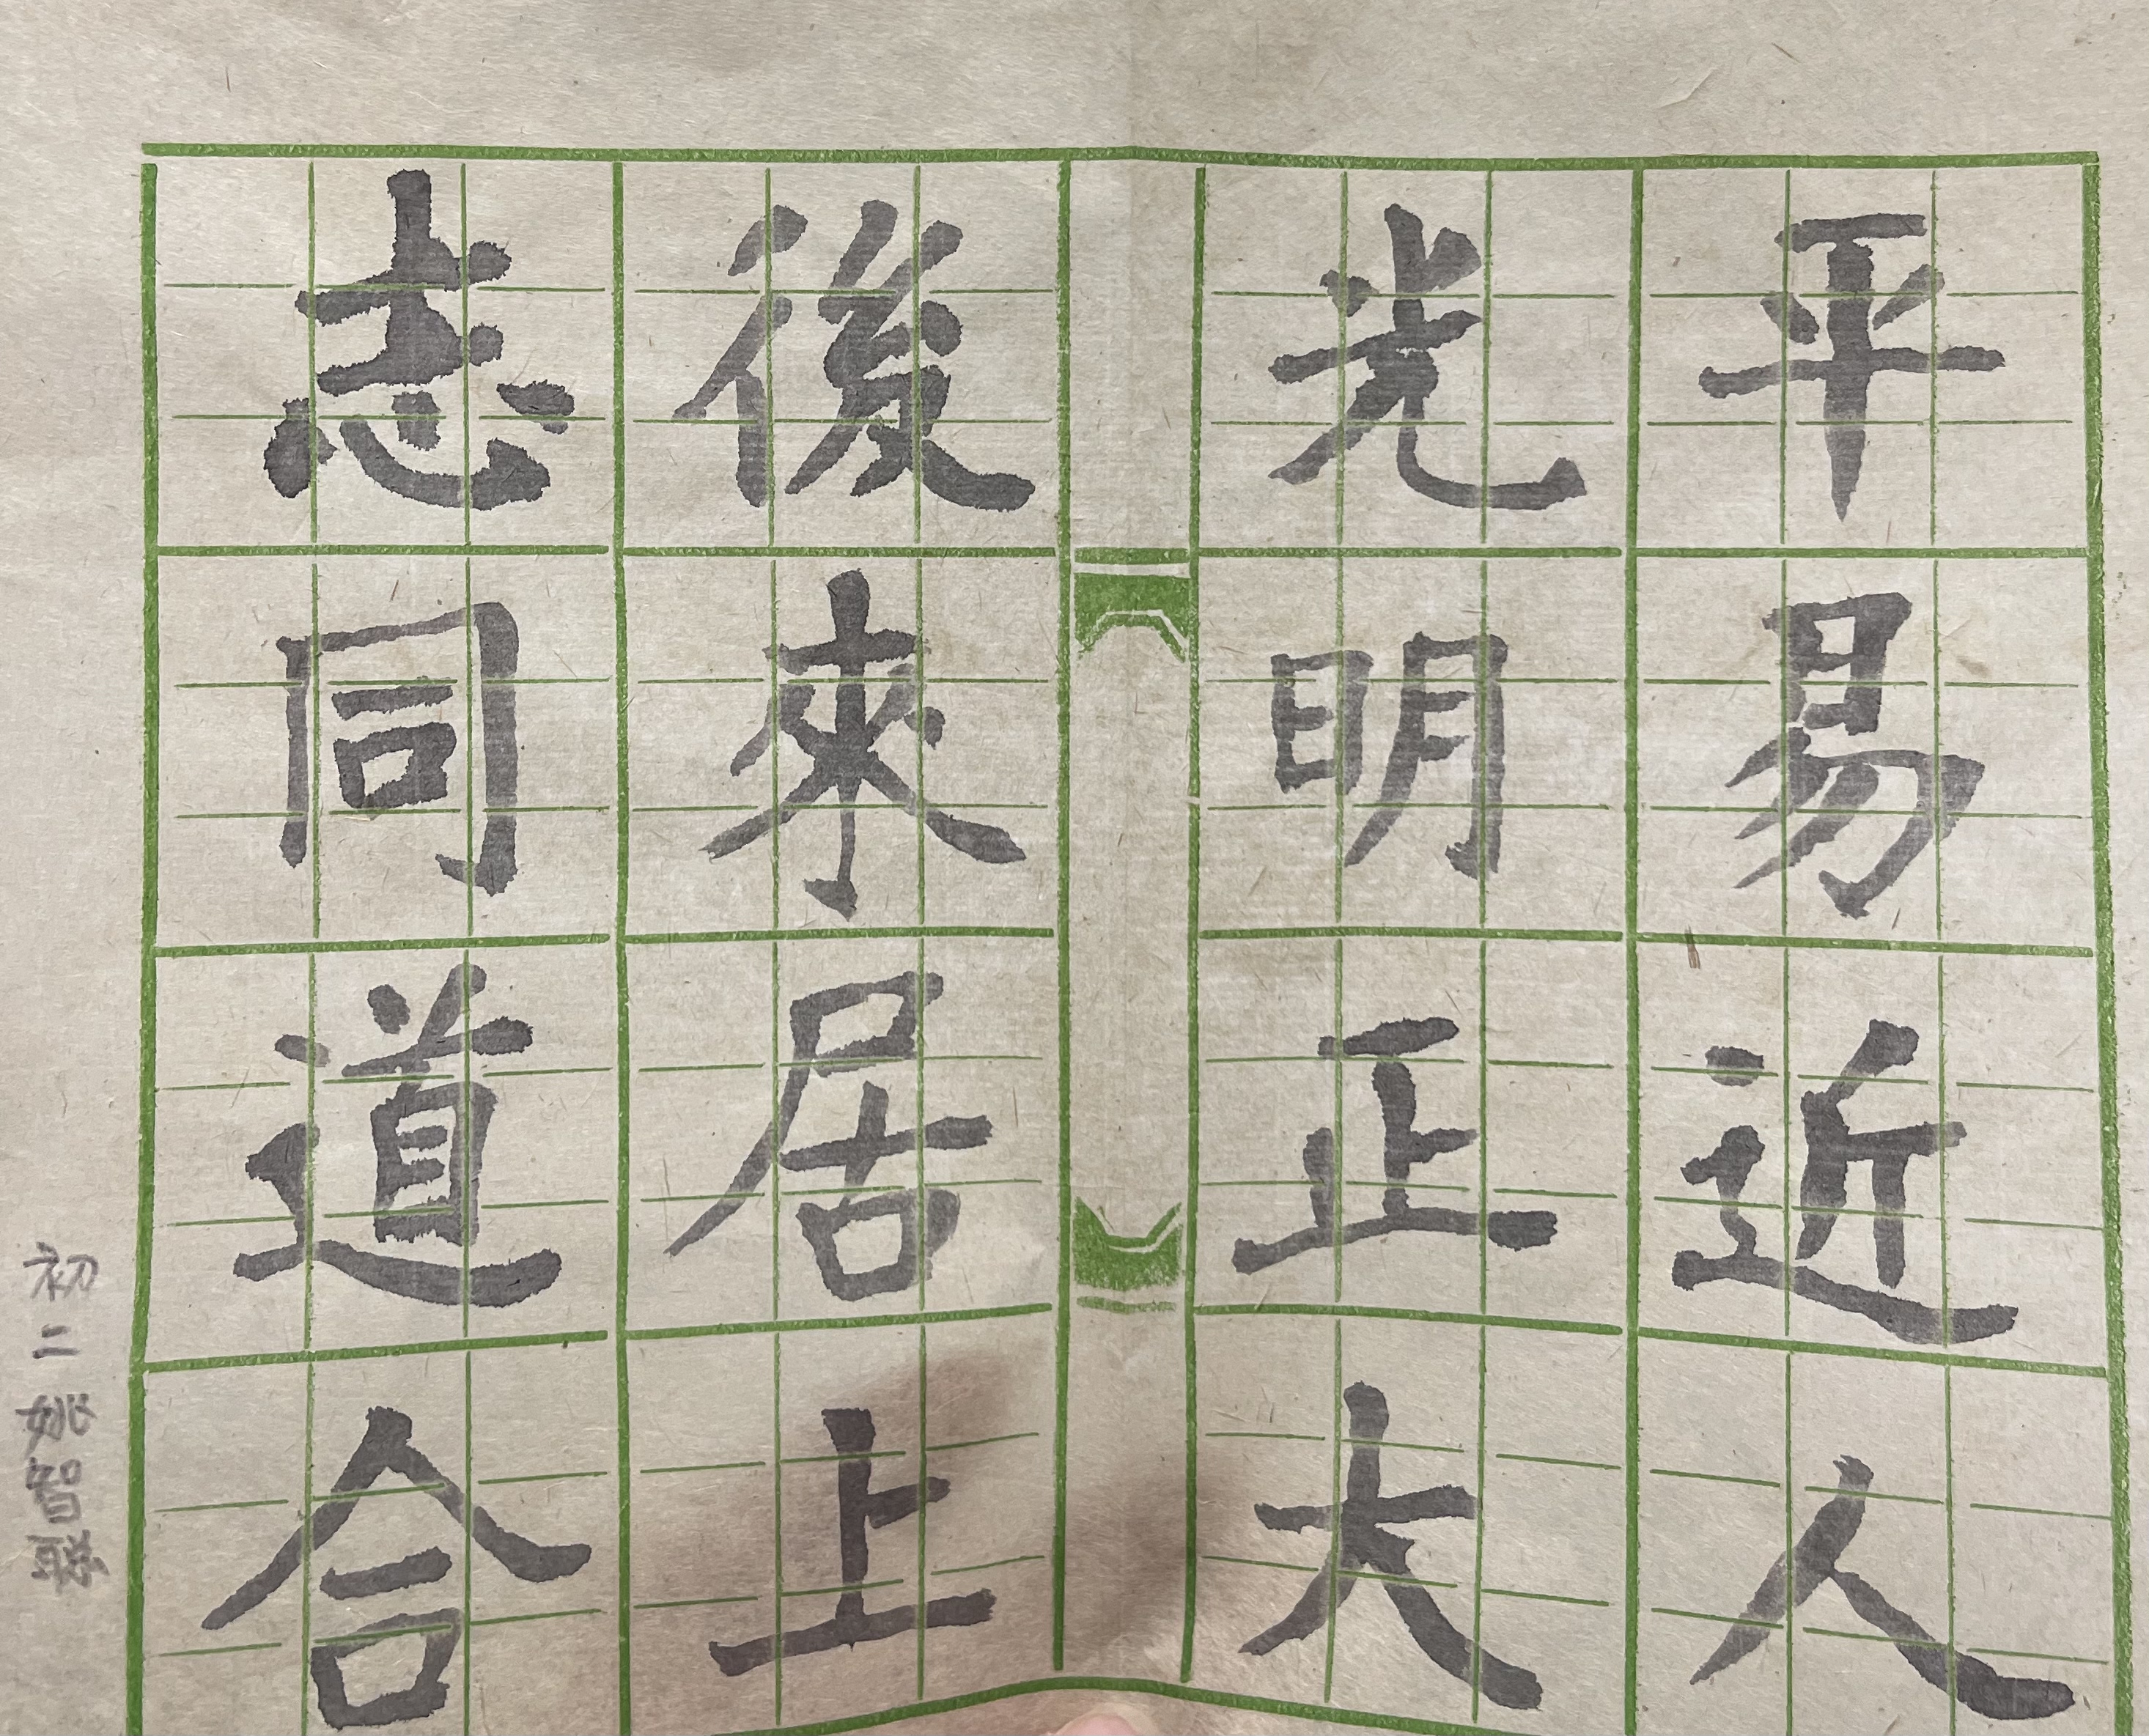 平易近人
光明正大
後來居上
志同道合
初二姚智聰